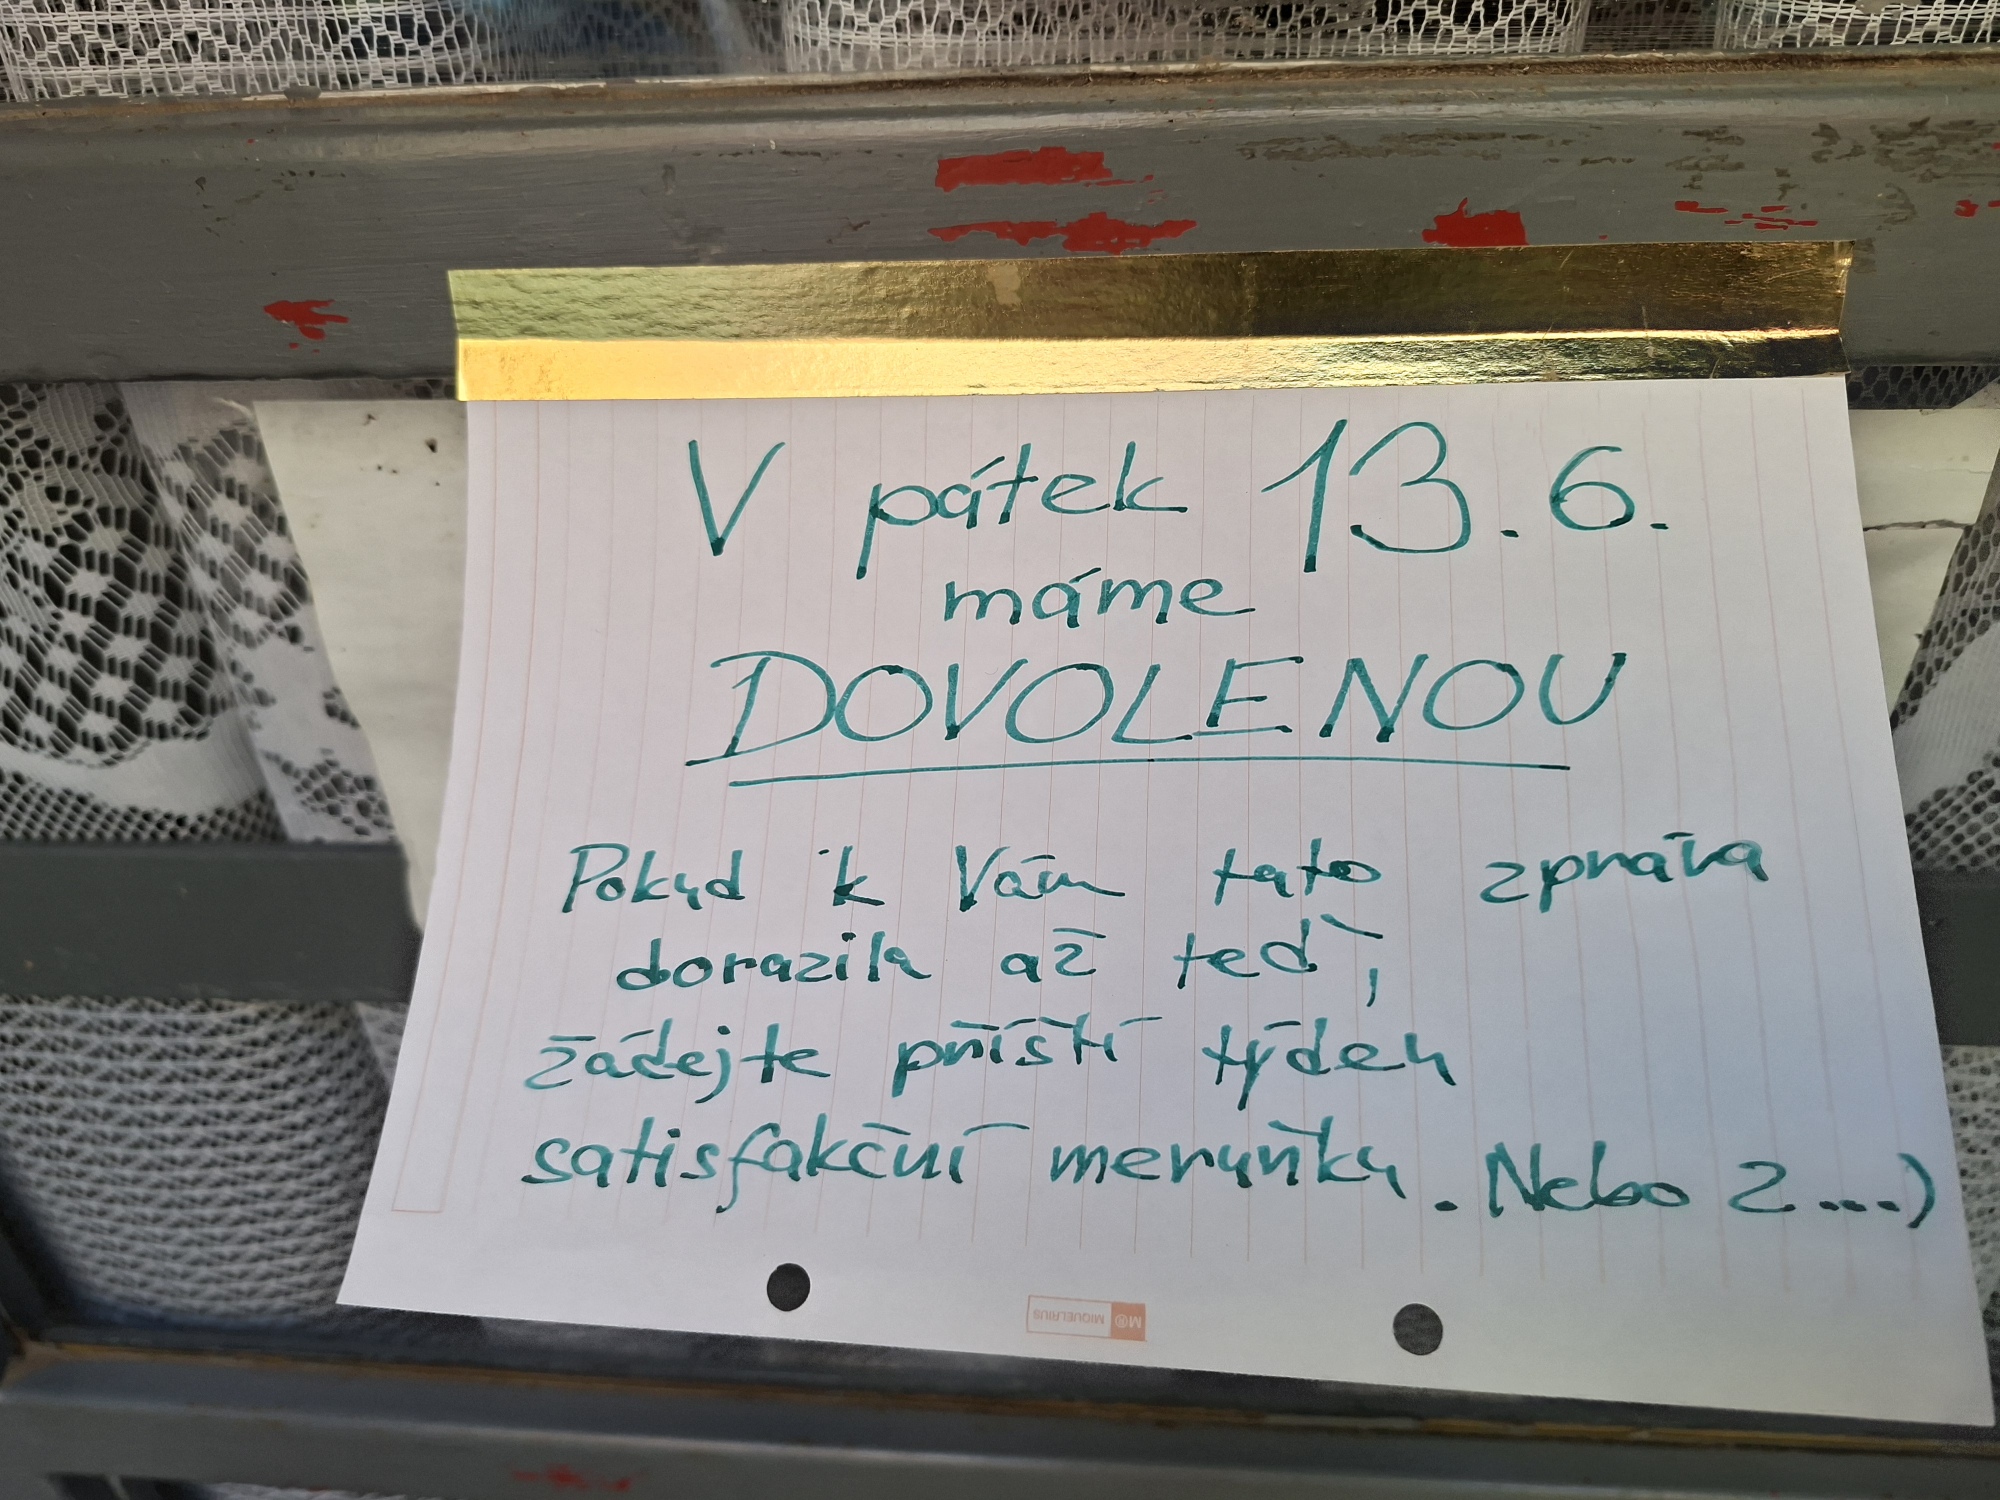 V pátek 13.6.
máme
DOVOLENOU
Pokud k Vám tato zpráva
dorazila až teď,
žádejte příští týden
satisfakční meruňku. Nebo 2...)
MIQUELRIUS M®